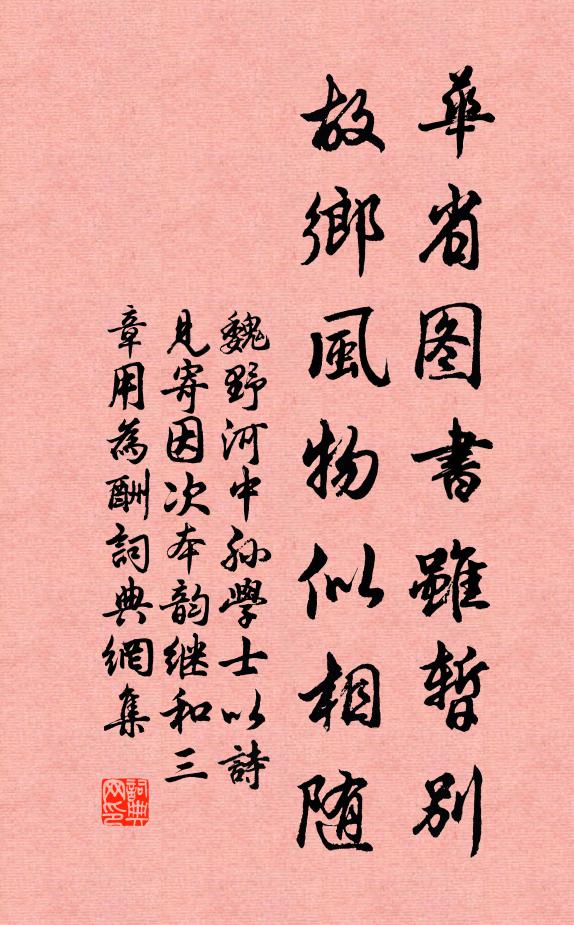 華省图書雖暫別
故鄉風物似相随
魏野河中孙學士以詩
見寄因次本韵继和三
章用為酬詞典網集
詞典网印